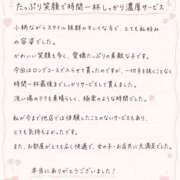 たっぷり笑顔で時間一杯しっかり濃厚サービス
小柄ながらスタイル抜群のキレイな方で、とても私好み
の容姿でした。
かわいい笑顔も多く、愛嬌たっぷりの素敵な子です。
今回はロングコースで入らせて貰ったのですが、一切手を抜くことなく
時間一杯最後までしっかりサービスして貰えました。
洗い場のプレイも素晴らしく、極楽のような時間でした。
私が今まで他店では体験したことのないサービスもあり、
とても気持ちよかったです。
また、お部屋がとても広く快適で、女の子・お店共に大満足でした。
本当にありがとうございました！